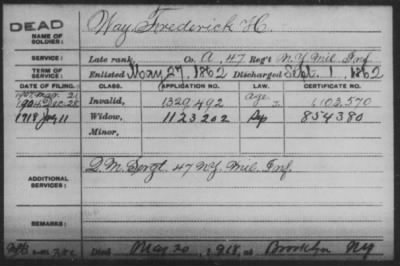 DEAD
NAME OF SOLDIER: Way, Frederick H.
SERVICE: Late rank, Co. A, 47 Reg't N.Y. Mil. Inf.
TERM OF SERVICE: Enlisted May 27, 1862 Discharged Sept. 1, 1862
DATE OF FILING. CLASS. APPLICATION NO. LAW. CERTIFICATE NO.
1904. Dec. 28 Invalid, 1329,492 age
1918 Widow, 1123202 854380
Minor,
ADDITIONAL SERVICES: Q. M. Sergt. 47 N.Y. Mil. Inf.
REMARKS:
Died May 20, 1918, at Brooklyn NY